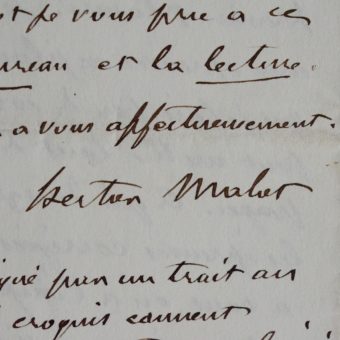 je vous prie a ce
et la lecture.
a vous affectueusement.
Hector Malot
par un trait au
croquis